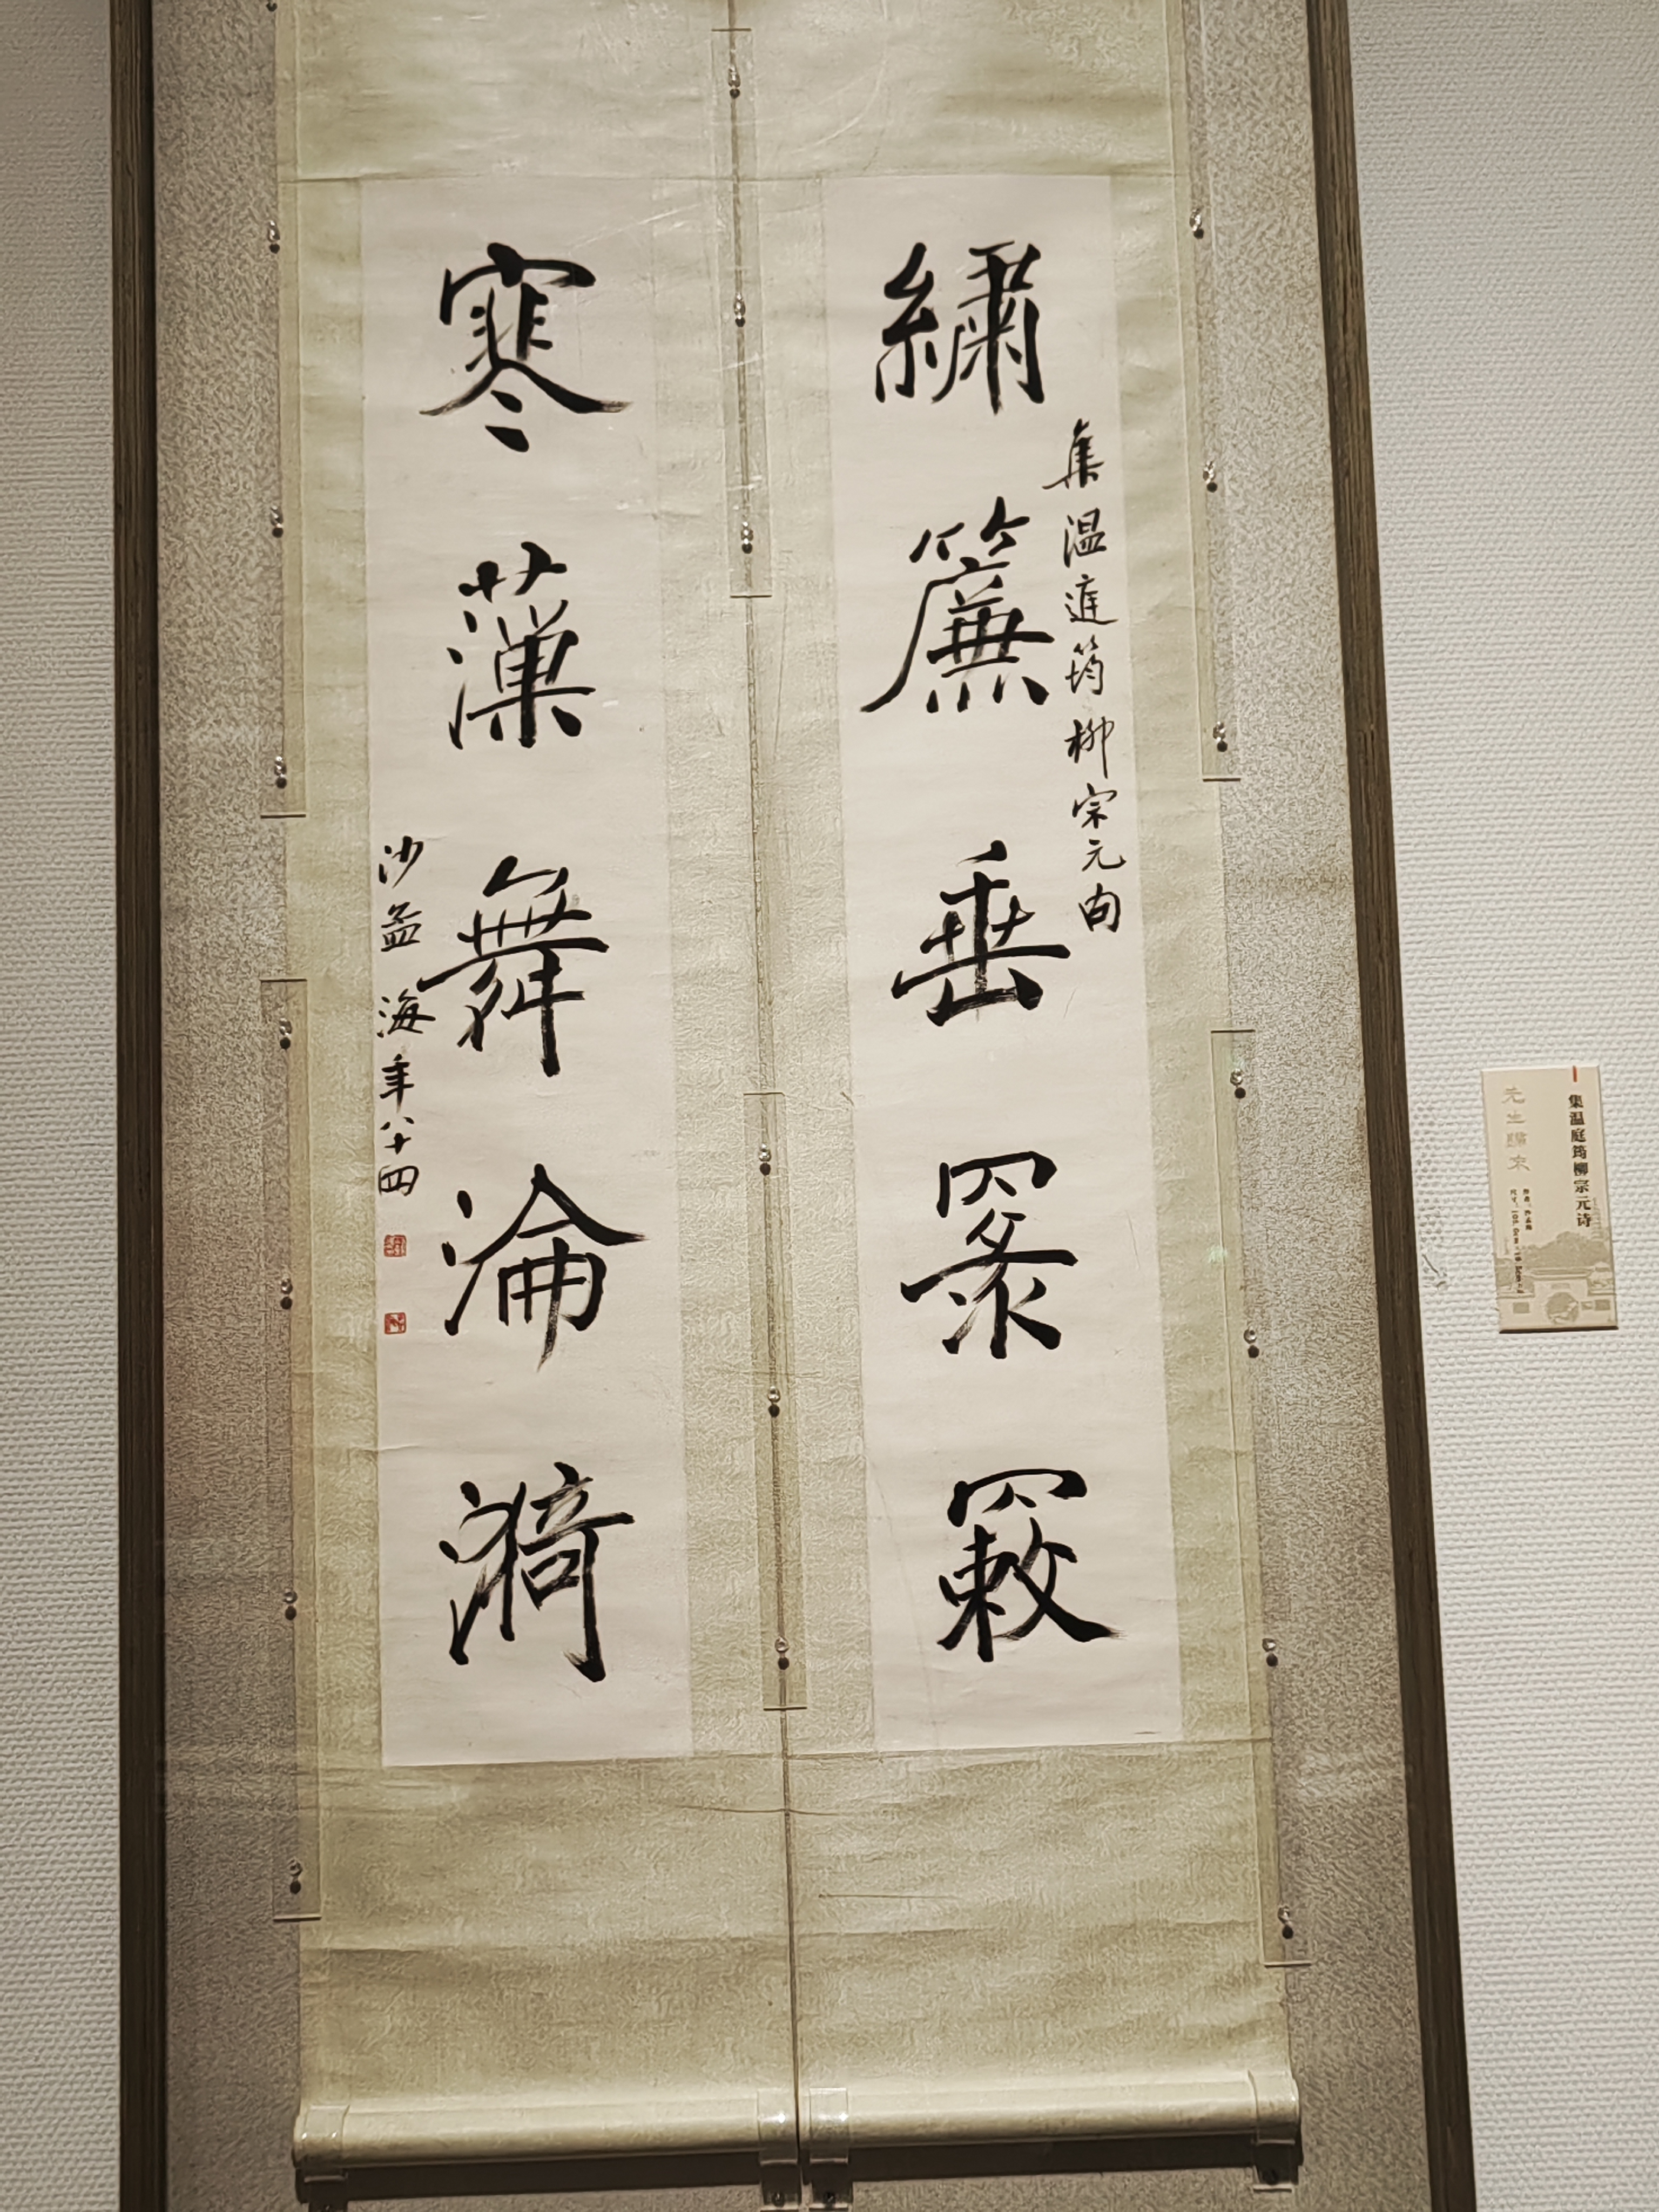 繡簾垂䍡
集温庭筠柳宗元句
寒薻舞淪漪
沙孟海年八十四
集温庭筠柳宗元诗
作者：沙孟海